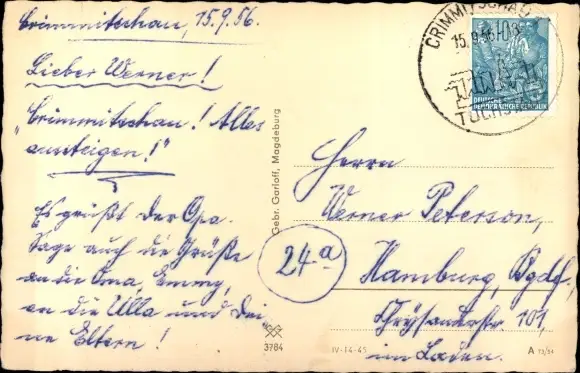 Crimmitschau, 15.9.56.
Lieber Werner!
Crimmitschau! Alles
"aussteigen!"
Es grüßt der Opa.
Sage auch die Grüße
an die Oma, Emmy,
an die Ulla und Dei
ne Eltern!
Gebr. Garloff, Magdeburg
3784
CRIMMITSCHAU
15.9.56.-08
DEUTSCHE
DEMOKRATISCHE REPUBLIK
Herrn
Werner Peterson,
24a
Hamburg, Bgdf.
Chrysanderstr. 101,
im Laden.
IV-14-45
A